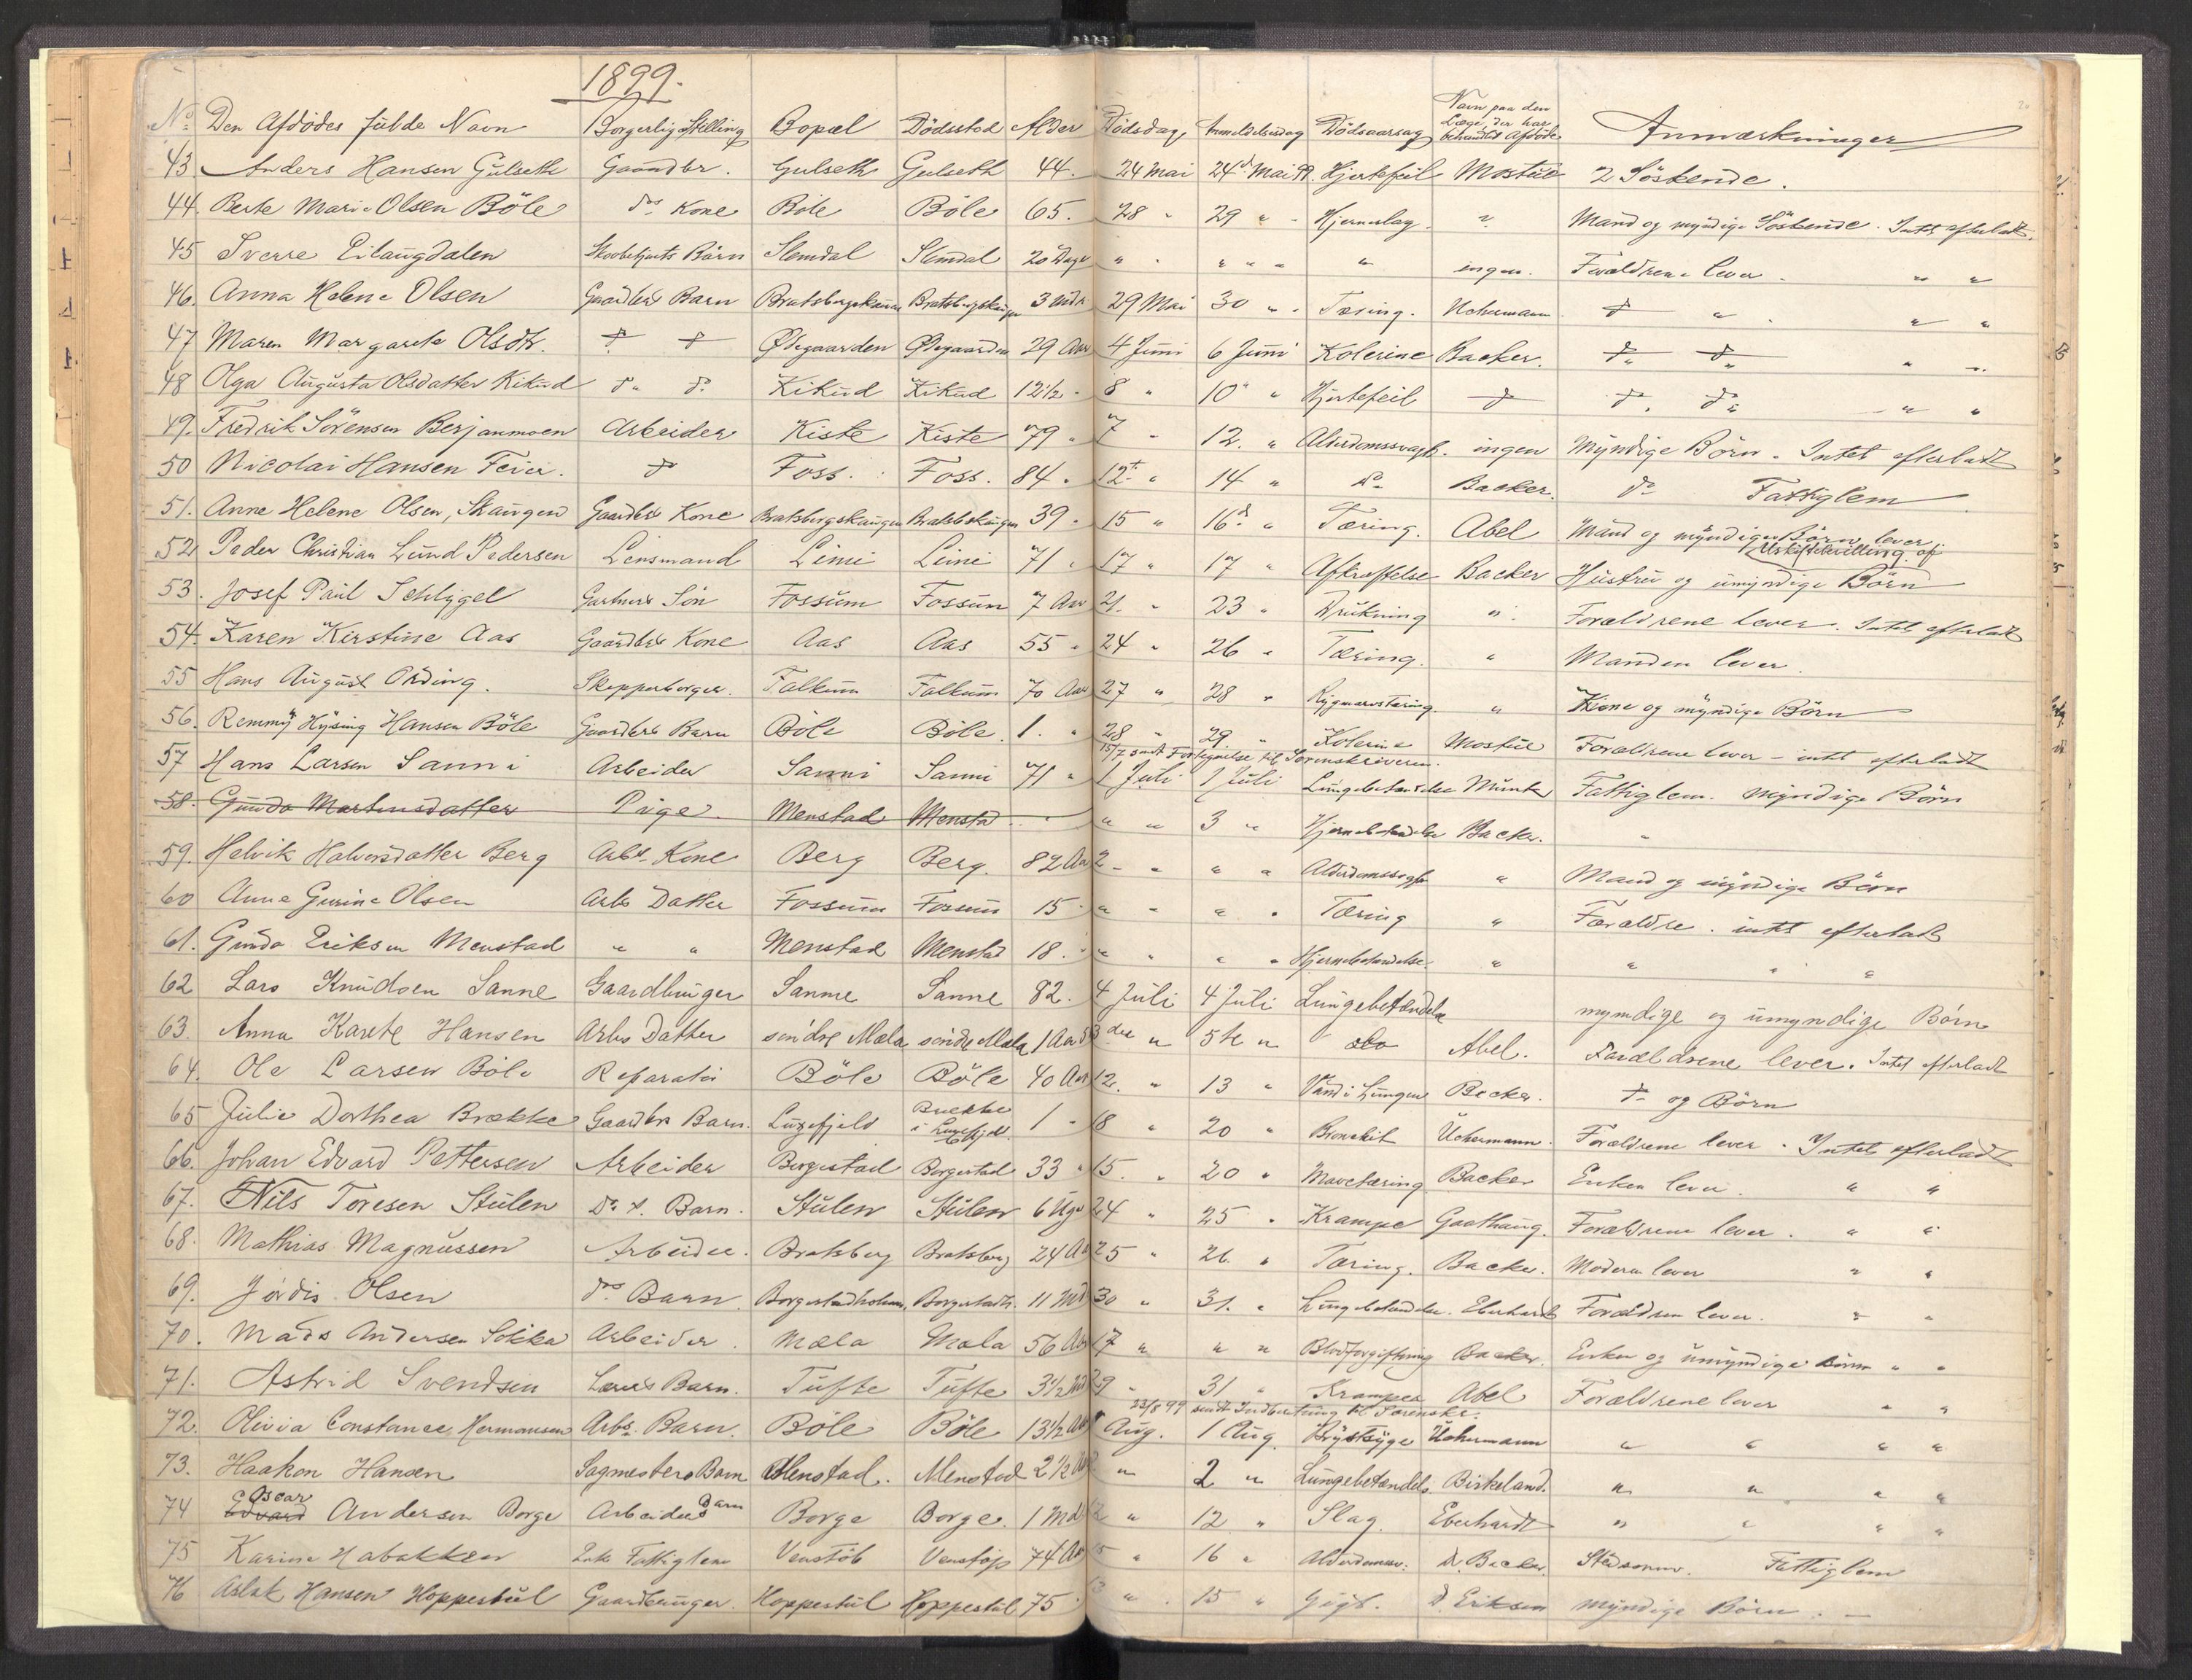 1899.
No Den Afdödes fulde Navn Borgerlig Stilling Bopæl Dödsstad Alder Dödsdag Anmeldelsesdag Dödsaarsag Navn paa den Læge, der har behandlet Afdöde Anmærkninger
43 Anders Hansen Gulseth Gaardbr. Gulseth Gulseth 44. 24 Mai 24d Mai 99. Hjertefeil Mostue 2 Söskende.
44. Berte Marie Olsen Böle ds Kone Böle Böle 65. 28 " 29 " - Hjerneslag. " Mand og myndige Söskende. Intet efterladt.
45 Sverre Eilaugdalen Barn Slemdal Slemdal 20 Dage " " " " " " ingen. Forældrene lever. " "
46. Anna Helene Olsen Gaardbrs Barn Bratsbergskaugen Bratsbergskaugen 3 Mdr 29 Mai 30 " . Tæring. Uchermann d " . " "
47 Maren Margarete Olsdtr. d d Ødegaarden Ødegaarden 29 Aar 4 Juni 6 Juni Kolerine Backer. do do " "
48 Olga Augusta Olsdatter Kikud do do Kikud Kikud 12 1/2 " 8 " 10 " " Hjertefeil d do do " "
49. Fredrik Sörensen Berjanmoen Arbeider Kiste Kiste 79 " 7 " 12. " Alderdomssvagh. ingen Myndige Börn. Intet efterladt
50 Nicolai Hansen Feier. d Foss. Foss. 84. 12te " 14 " do Backer. do Fattiglem
51. Anne Helene Olsen, Skaugen Gaardbrs Kone Bratsbergskaugen Bratsbskaugen 39 " 15 " 16d " Tæring. Abel Mand og myndige Börn lever.
52 Peder Christian Lund Pedersen Lensmand Limi Limi 71 " 17 " 17 " Afkræftelse Backer Hustru og umyndige Börn
53. Josef Paul Schlygel Gartners Sön Fossum Fossum 7 Aar 21. " 23 " Drukning ". Forældrene lever. Intet efterladt
54. Karen Kirstine Aas Gaardbrs Kone Aas Aas 55 " 24 " 26 " Tæring. " Manden lever.
55 Hans August Ording. Skipperborger. Falkum Falkum 70 Aar 27 " 28 " Rygmarvstæring. " Kone og myndige Börn
56. Remmy Hysing Hansen Böle Gaardbrs Barn Böle Böle 1. " 28 " 29 " Kolerine Mostue Forældrene lever - intet efterladt
15/7 sendt Fortegnelse til Sorenskriveren.
57 Hans Larsen Sanni Arbeider Sanni Sanni 71 " 1 Juli 1 Juli Lungebetændelse Munk Fattiglem. Myndige Börn
58. Gunda Martinsdatter Pige. Menstad Menstad " " 3 " Hjernebetændelse Backer. "
59. Helvik Halvorsdatter Berg Arbs. Kone Berg Berg. 82 Aar 2 - " " " Alderdomssvagh " Mand og myndige Börn
60 Anne Gurine Olsen Arbs Datter Fossum Fossum 15 " " " " Tæring " Forældre. intet efterladt
61. Gunda Eriksen Menstad " " Menstad Menstad 18. " " " " Hjernebetændelse. " " " "
62 Lars Knudsen Sanne Gaardbruger Sanne Sanne 82. 4 Juli 4 Juli Lungebetændelse myndige og umyndige Börn
63. Anna Karete Hansen Arbs Datter söndre Mæla söndre Mæla 1 Aar 3die " 5te " do Abel. Forældrene lever. Intet efterladt
64. Ole Larsen Böle Reparatör Böle Böle 40 Aar 12. " 13 " Vand i Lungen Backer. do og Börn
65 Julie Dorthea Brække Gaardbrs Barn. Luxefjeld Brække i Luxefjeld 1 " 18 " 20 " Bronchit Uchermann. Forældrene lever. Intet efterladt
66. Johan Edvard Pettersen Arbeider Borgestad Borgestad 33 " 15. " 20 " Mavetæring Backer Enken lever. " "
67. Nils Toresen Stulen Do s. Barn. Stulen Stulen 6 Uger 24 " 25 " Krampe Gaathaug. Forældrene lever. " "
68. Mathias Magnussen Arbeider. Bratsberg Bratsberg 24 Aar 25 " 26. " Tæring. Backer. Moderen lever " "
69. Jördis Olsen ds Barn. Borgestadholmen, Borgestadh. 11 Md 30 " 31. " Lungebetændelse. Eberhardt Forældren lever. " "
70. Mads Andersen Sokka Arbeider. Mæla Mæla 56 Aar 17 " " " Blodforgiftning Backer. Enke og umyndige Börn " "
71. Astrid Svendsen Lærers Barn. Tufte Tufte 3 1/2 Md 29 " 31 " Kramper Abel Forældrene lever " "
23/8 99 sendt Indberetning til Sorenskr.
72. Olivia Constance, Hermansen Arbs. Barn. Böle Böle 13 1/2 Aar Aug. 1 Aug. Brystsyge Uchermann " " " "
73. Haakon Hansen Sagmesters Barn Menstad. Menstad 2 1/2 Aar " 2 " Lungebetændels. Birkeland. " " " "
74 Edvard Oscar Andersen Borge Arbeiders Barn Borge Borge. 1 Md 12 " 12 " Slag. Eberhardt " " " "
75 Karine Habakken Enke Fattiglem Venstöb Venstöp 74 Aar 15 " 16 " Alderdomssv. D. Backer. Stedsönner. Fattiglem
76 Aslak Hansen Hoppestul Gaardbruger. Hoppestul Hoppestul 75 " 13 " . 15 " Gigt. D. Eriksen Myndige Börn. -